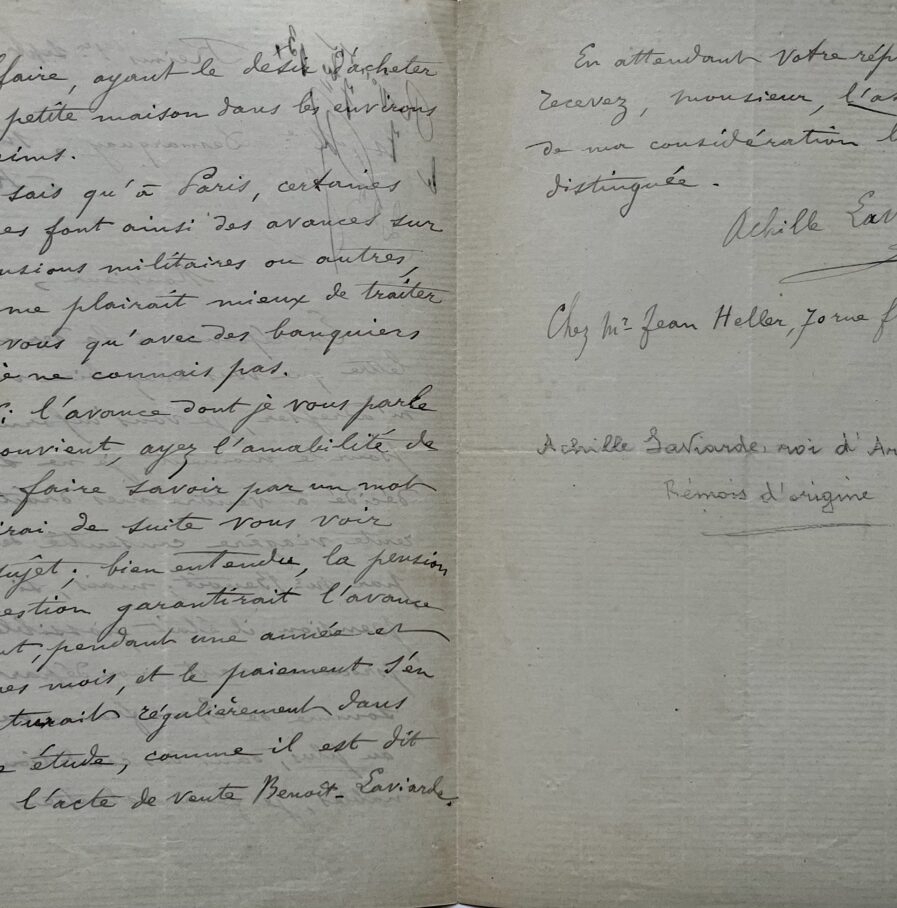 faire, ayant le desir d'acheter
petite maison dans les environs
eims.
sais qu'à Paris, certaines
es font ainsi des avances sur
nsions militaires ou autres,
me plairait mieux de traiter
vous qu'avec des banquiers
je ne connais pas.
Si l'avance dont je vous parle
ouvient, ayez l'amabilité de
faire savoir par un mot
irai de suite vous voir
sujet; bien entendu, la pension
estion garantirait l'avance
nt, pendant une année et
es mois, et le paiement s'en
turait régulièrement dans
étude, comme il est dit
l'acte de vente Benoît-Laviarde.
En attendant votre rép
recevez, monsieur, l'as
de ma considération l
distinguée.
Achille Lav
Chez Mr Jean Heller, 70 rue
Achille Laviarde, roi d'Ar
Rémois d'origine